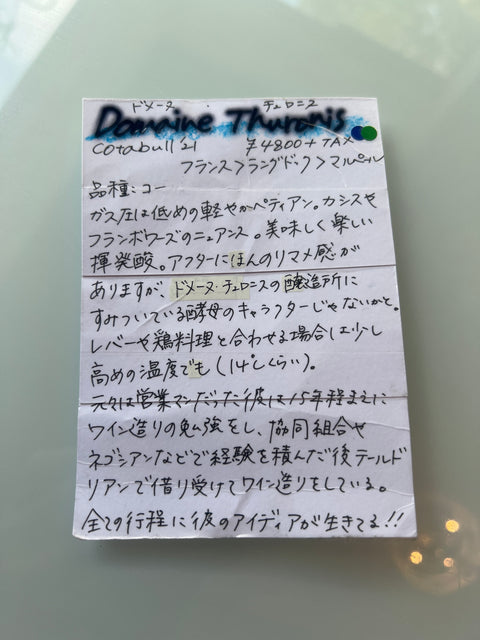 ドメーヌ・チュロニス
Domaine Thuronis
Cotabull 21 ¥4800+TAX
フランス>ラングドック>マルペール
品種:コー
ガス圧は低めの軽やかペティアン。カシスや
フランボワーズのニュアンス。美味しく楽しい
揮発酸。アフターにほんのりマメ感が
ありますが、ドメーヌ・チュロニスの醸造所に
すみついている酵母のキャラクターじゃないかと。
レバーや鶏料理と合わせる場合は少し
高めの温度でも(14℃くらい)。
元々は営業マンだった彼は15年程まえに
ワイン造りの勉強をし、協同組合や
ネゴシアンなどで経験を積んだ後テールド
リアンで借り受けてワイン造りをしている。
全ての行程に彼のアイディアが生きてる!!